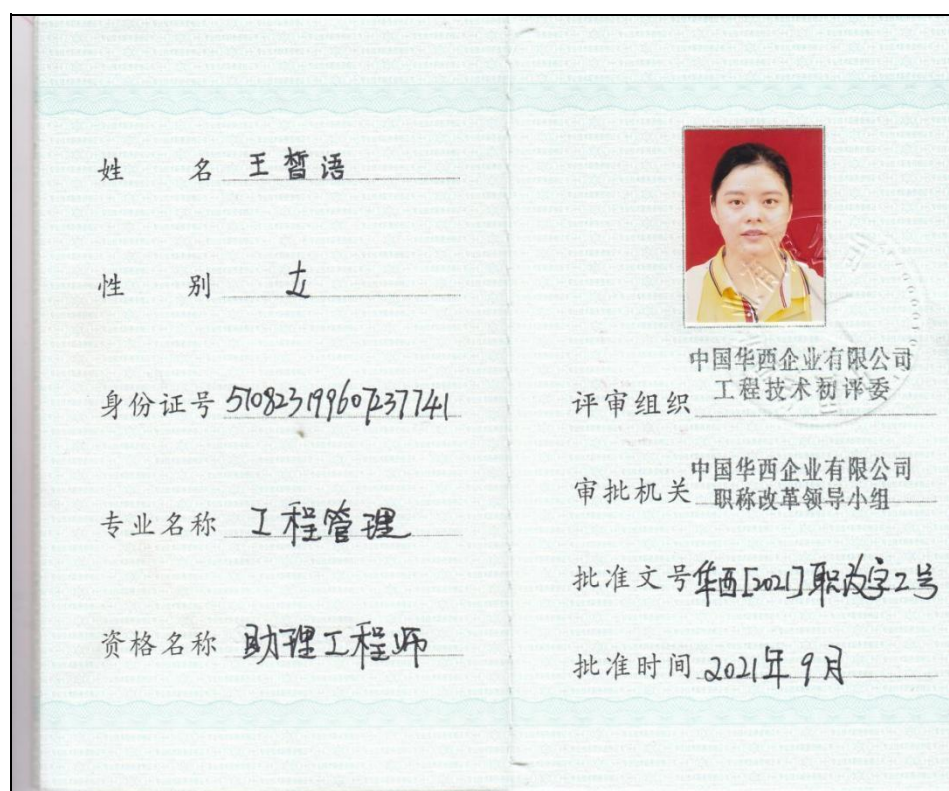 姓名 王皙语
性别 女
身份证号 510823199607237741
专业名称 工程管理
资格名称 助理工程师
中国华西企业有限公司
评审组织 工程技术初评委
中国华西企业有限公司
审批机关 职称改革领导小组
批准文号 华西[2021]职改字2号
批准时间 2021年9月